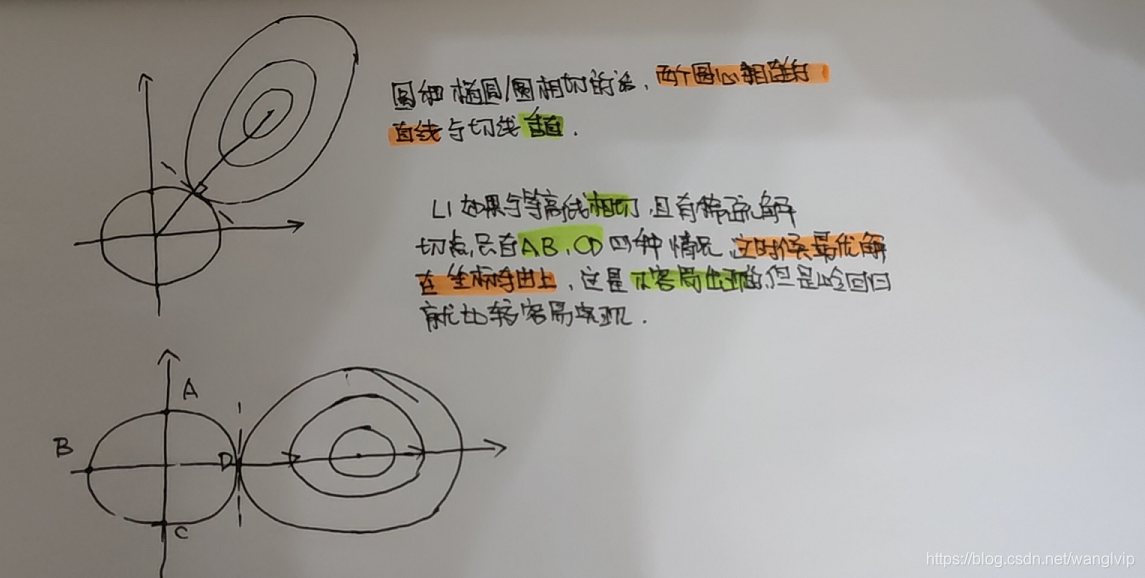 圆和椭圆/圆相切的话,两个圆心相连的
直线与切线垂直.
L1如果与等高线相切,且有稀疏解
切点只有AB,CD四种情况,这时候最优解
在坐标轴上,这是不容易出现的,但是岭回归
就比较容易实现.
A
B
D
C
https://blog.csdn.net/wanglvip